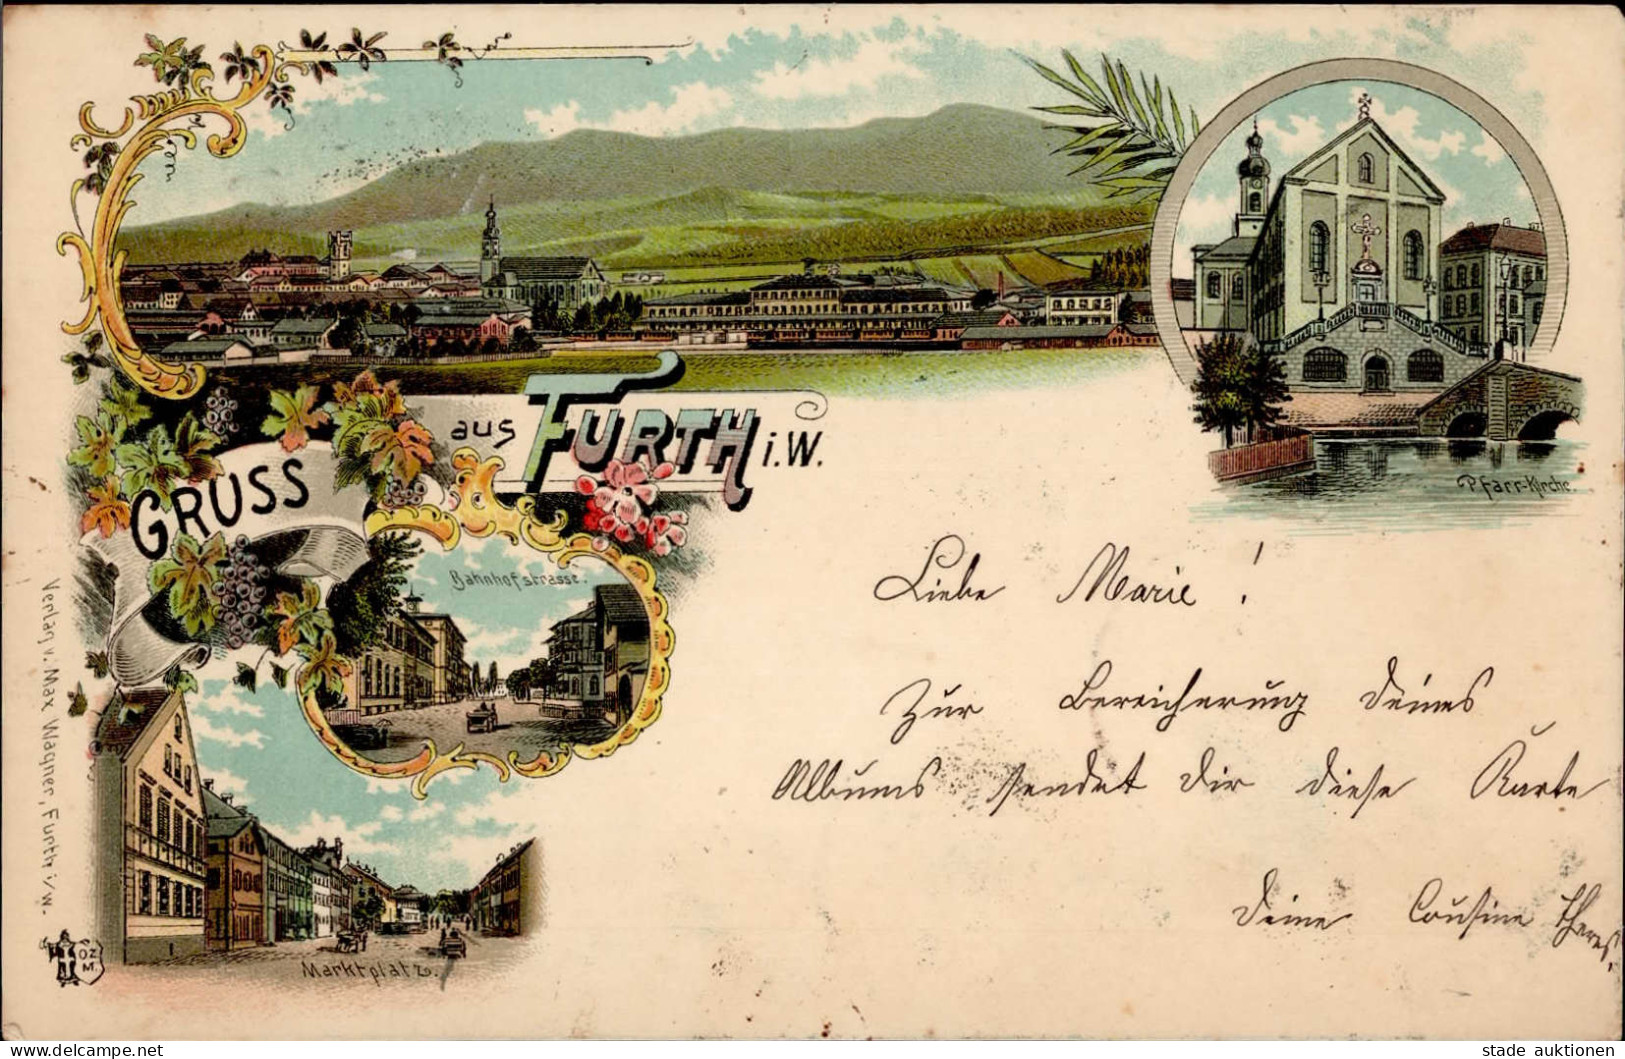 GRUSS
aus FURTH i.W.
Pfarr-Kirche.
Bahnhofstrasse.
Marktplatz.
Verlag v. Max Wagner, Furth i/W.
OZM.
Liebe Marie!
Zur Bereicherung Deines
Albums sendet Dir diese Karte
Deine Cousine Theres.
stade auktionen
©Delcampe.net/StadeAuktionen